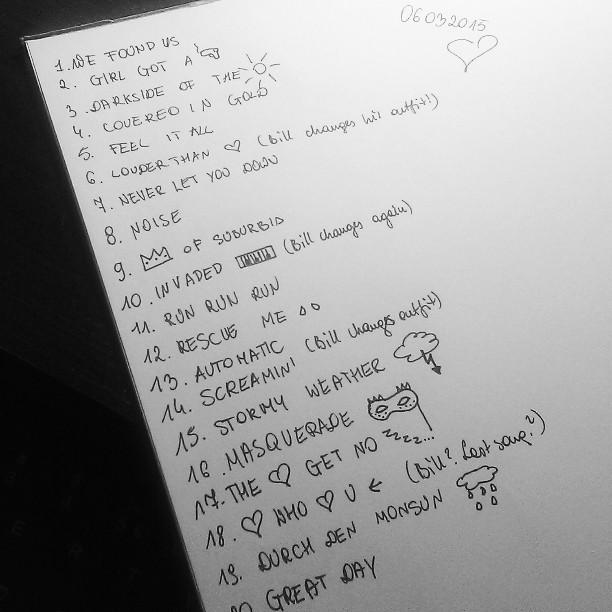 06032015
1. WE FOUND US
2. GIRL GOT A
3. DARKSIDE OF THE
4. COVERED IN GOLD
5. FEEL IT ALL
6. LOUDER THAN ♡ (Bill changes his outfit!)
7. NEVER LET YOU DOWN
8. NOISE
9. OF SUBURBIA
10. INVADED (Bill changes again)
11. RUN RUN RUN
12. RESCUE ME
13. AUTOMATIC
14. SCREAMIN! (Bill changes outfit)
15. STORMY WEATHER
16. MASQUERADE
17. THE ♡ GET NO zzzz...
18. ♡ WHO ♡ U ← (Bill? Last song?)
19. DURCH DEN MONSUN
20 GREAT DAY